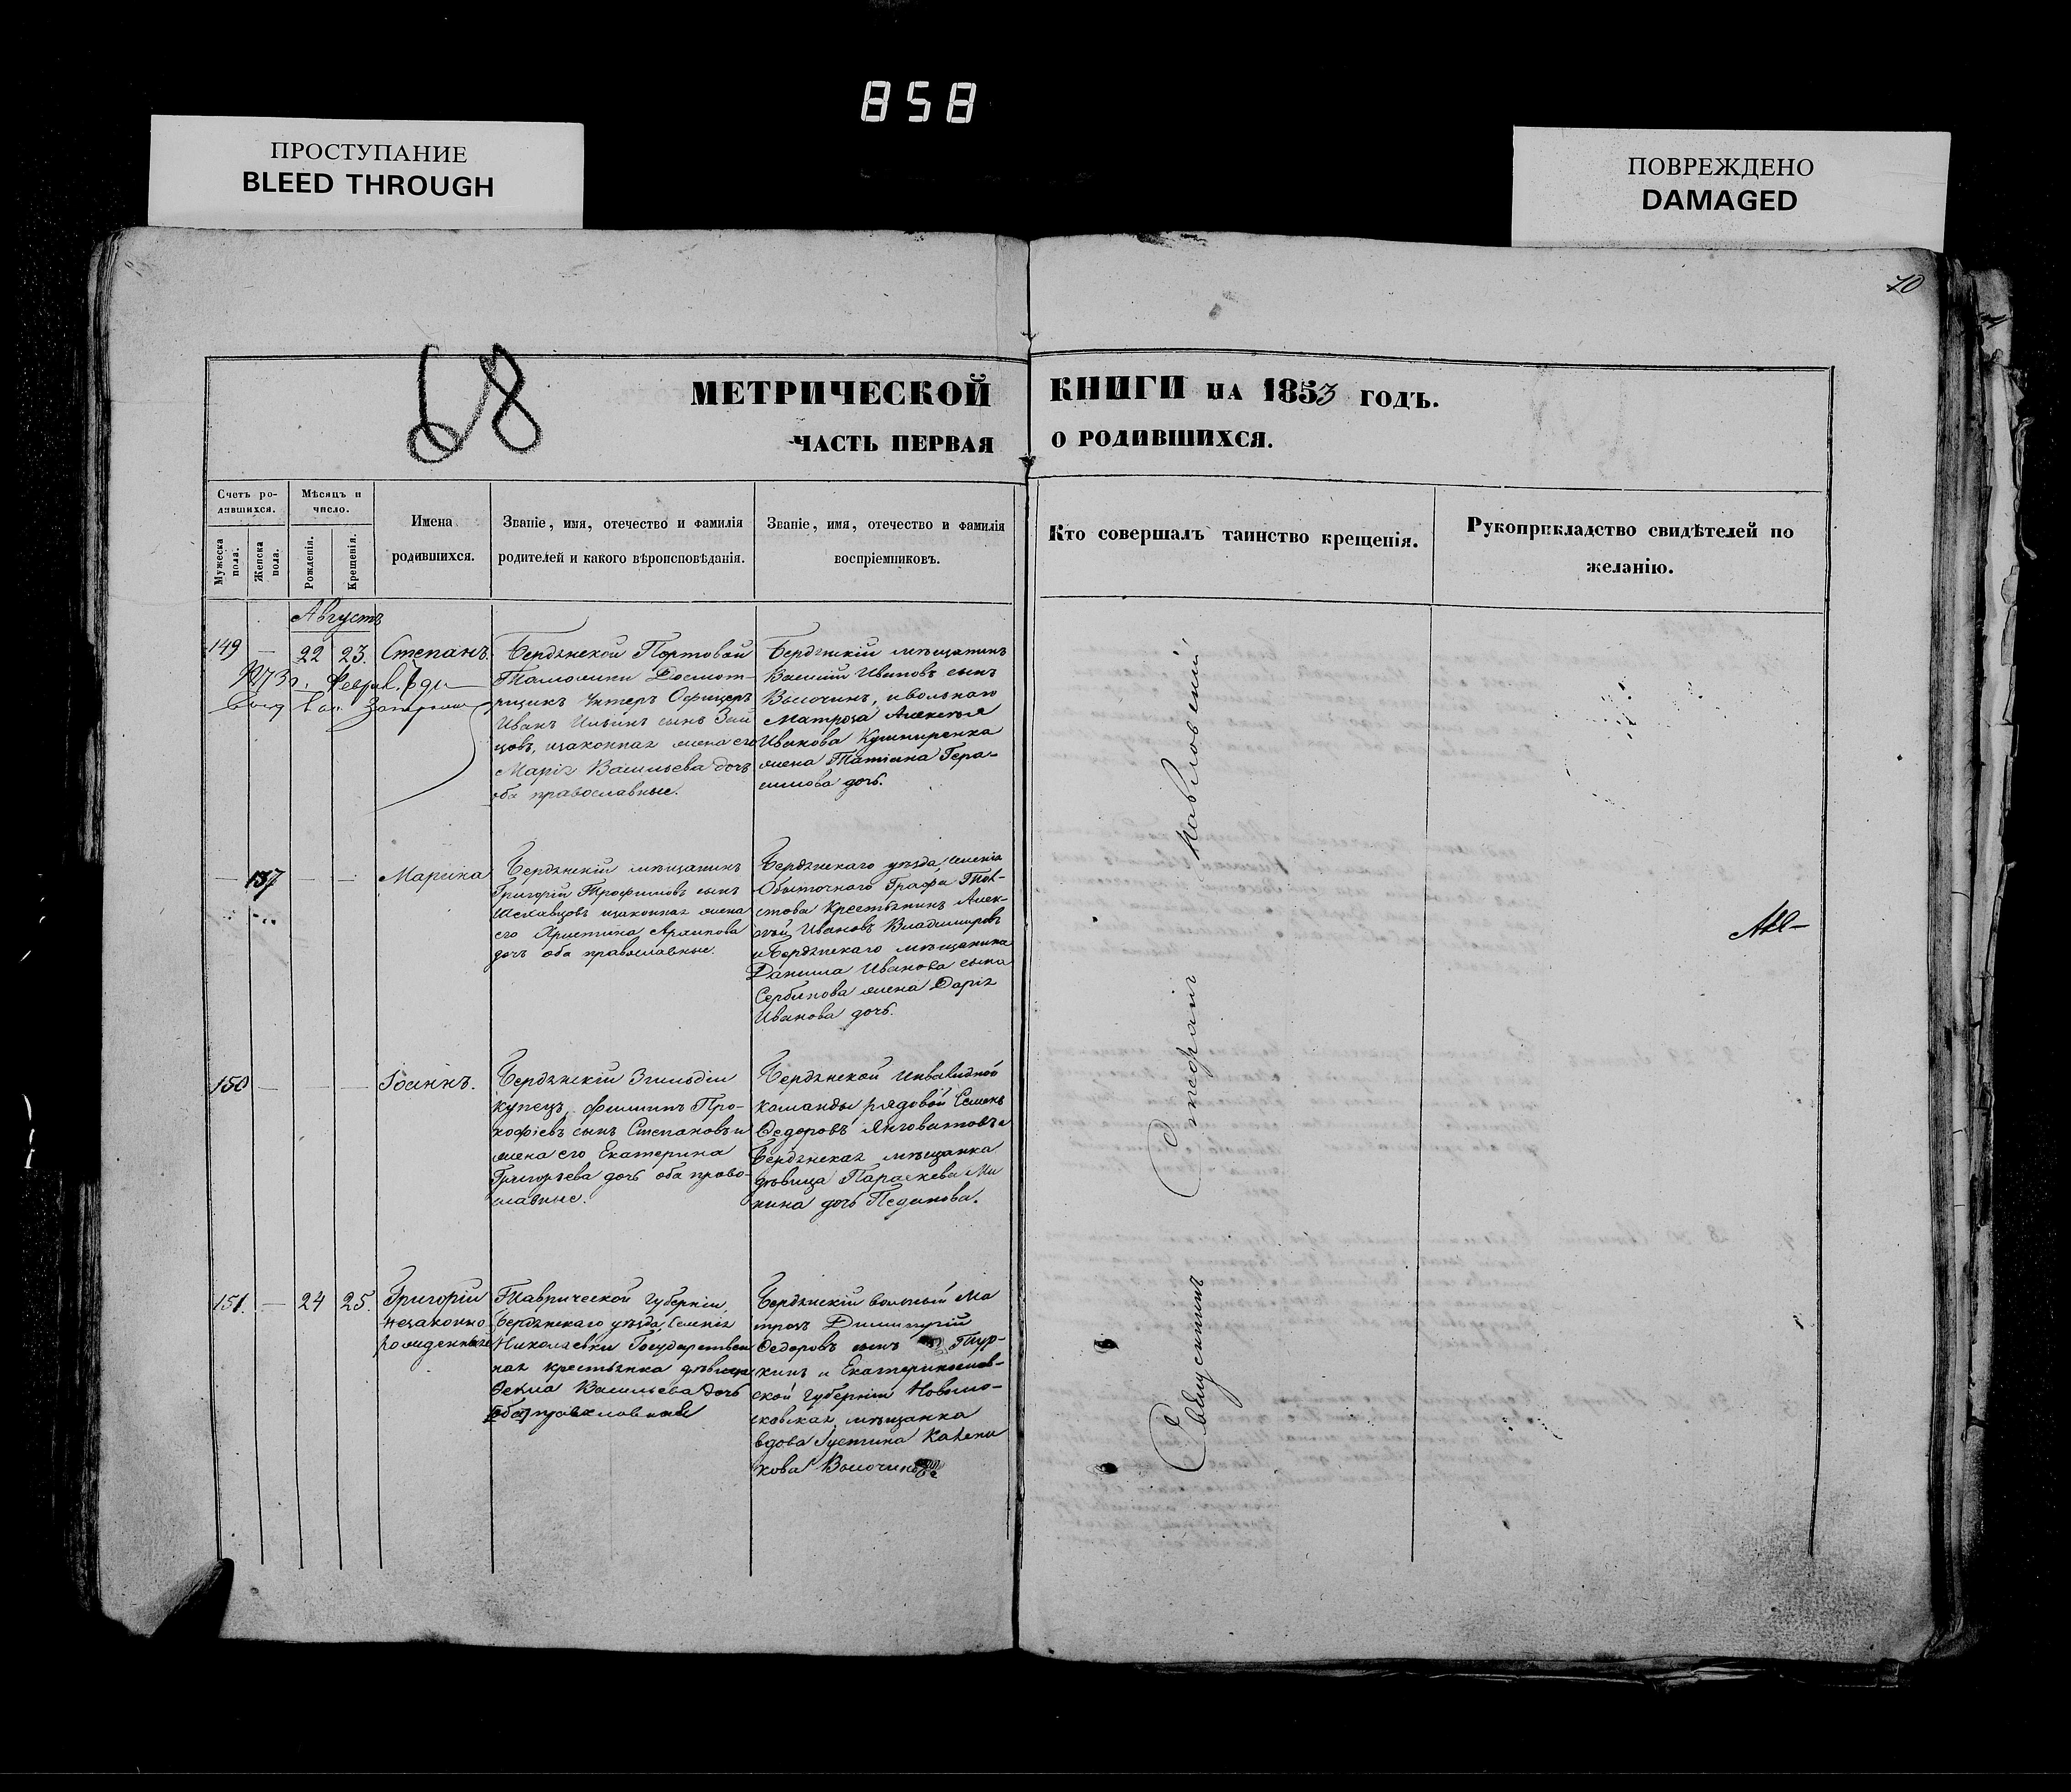 858
ПРОСТУПАНИЕ
BLEED THROUGH
ПОВРЕЖДЕНО
DAMAGED
70
68
МЕТРИЧЕСКОЙ КНИГИ НА 1853 ГОДЪ.
ЧАСТЬ ПЕРВАЯ О РОДИВШИХСЯ.
Счетъ ро-
дившихся.
Мужеска пола.
Женска пола.
Мѣсяцъ и
число.
Рожденія.
Крещенія.
Имена
родившихся.
Званіе, имя, отечество и фамилія
родителей и какого вѣроисповѣданія.
Званіе, имя, отечество и фамилія
воспріемниковъ.
Кто совершалъ таинство крещенія.
Рукоприкладство свидѣтелей по
желанію.
Августъ
149 — 22 23. Степанъ.
Бердянской Портовой
Таможни Досмот-
рщикъ Унтеръ Офицеръ
Иванъ Ильинъ сынъ
цовъ, изаконная жена его
Марія Васильева дочь
оба православные.
Бердянскій мѣщанинъ
Василій Ивановъ сынъ
Высочинъ, ивольнаго
Матроза Алексѣя
Иванова Кушниренка
жена Татіана Гера-
симова дочь.
— 137 — — Марина
Бердянскій мѣщанинъ
Григорій Трофимовъ сынъ
Шелавцовъ изаконная жена
его Христина Архипова
дочь оба православные.
Бердянскаго уѣзда, имѣнія
Обыточнаго Графа Тол-
стова Крестьянинъ Алек-
сѣй Ивановъ Владимировъ
иБердянскаго мѣщанина
Данила Иванова сына
Сербинова жена Дарія
Иванова дочь.
150 — — — Іоаннъ.
Бердянскій 3гильдіи
купецъ, Филиппъ Про-
кофіевъ сынъ Степановъ и
жена его Екатерина
Григорьева дочь оба право-
славные.
Бердянской Инвалидной
команды рядовой Семенъ
Ѳедоровъ
Бердянская мѣщанка
дѣвица Параскева Ми
нина дочь Педанова.
151. — 24 25. Григорій
незаконно
рожденный
Таврической губерніи,
Бердянскаго уѣзда, селенія
Николаевки Государствен
ная крестьянка дѣвица
Ѳекла Васильева дочь
православная
Бердянскій вольный Ма
трозъ Димитрій
Ѳедоровъ сынъ Тур-
кинъ и Екатеринослав-
ской губерніи Новомо-
сковская, мѣщанка
вдова Іустина Калени
кова Высочинова
Священникъ Стефанъ Павловскій